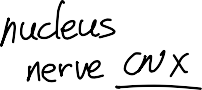 nucleus
nerve CN X